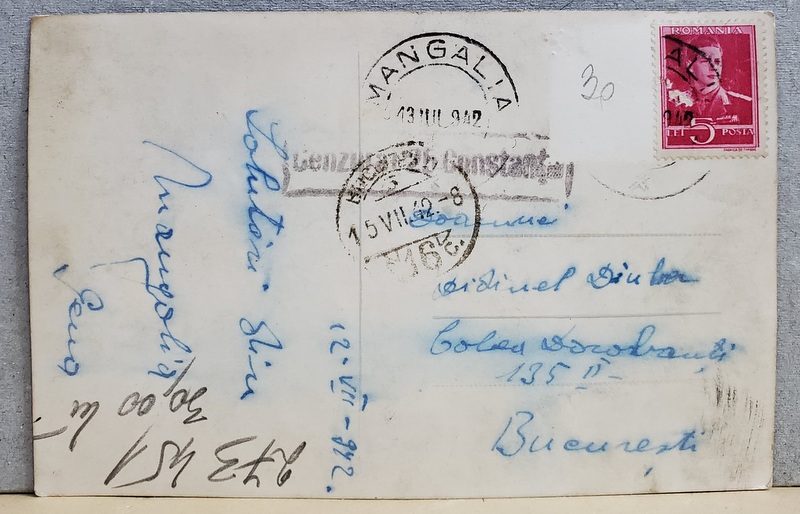 MANGALIA
13 IUL 942
30
ROMANIA
LEI 5 POSTA
Cenzurat Constanța
BUCUREȘTI
15 VII. 42 - 8
16
Doamnei
Didinel
Calea Dorobanți
135 II
București
Salutări din
Mangalia
Geno
12-VII-942.
30,00 lei
273 451